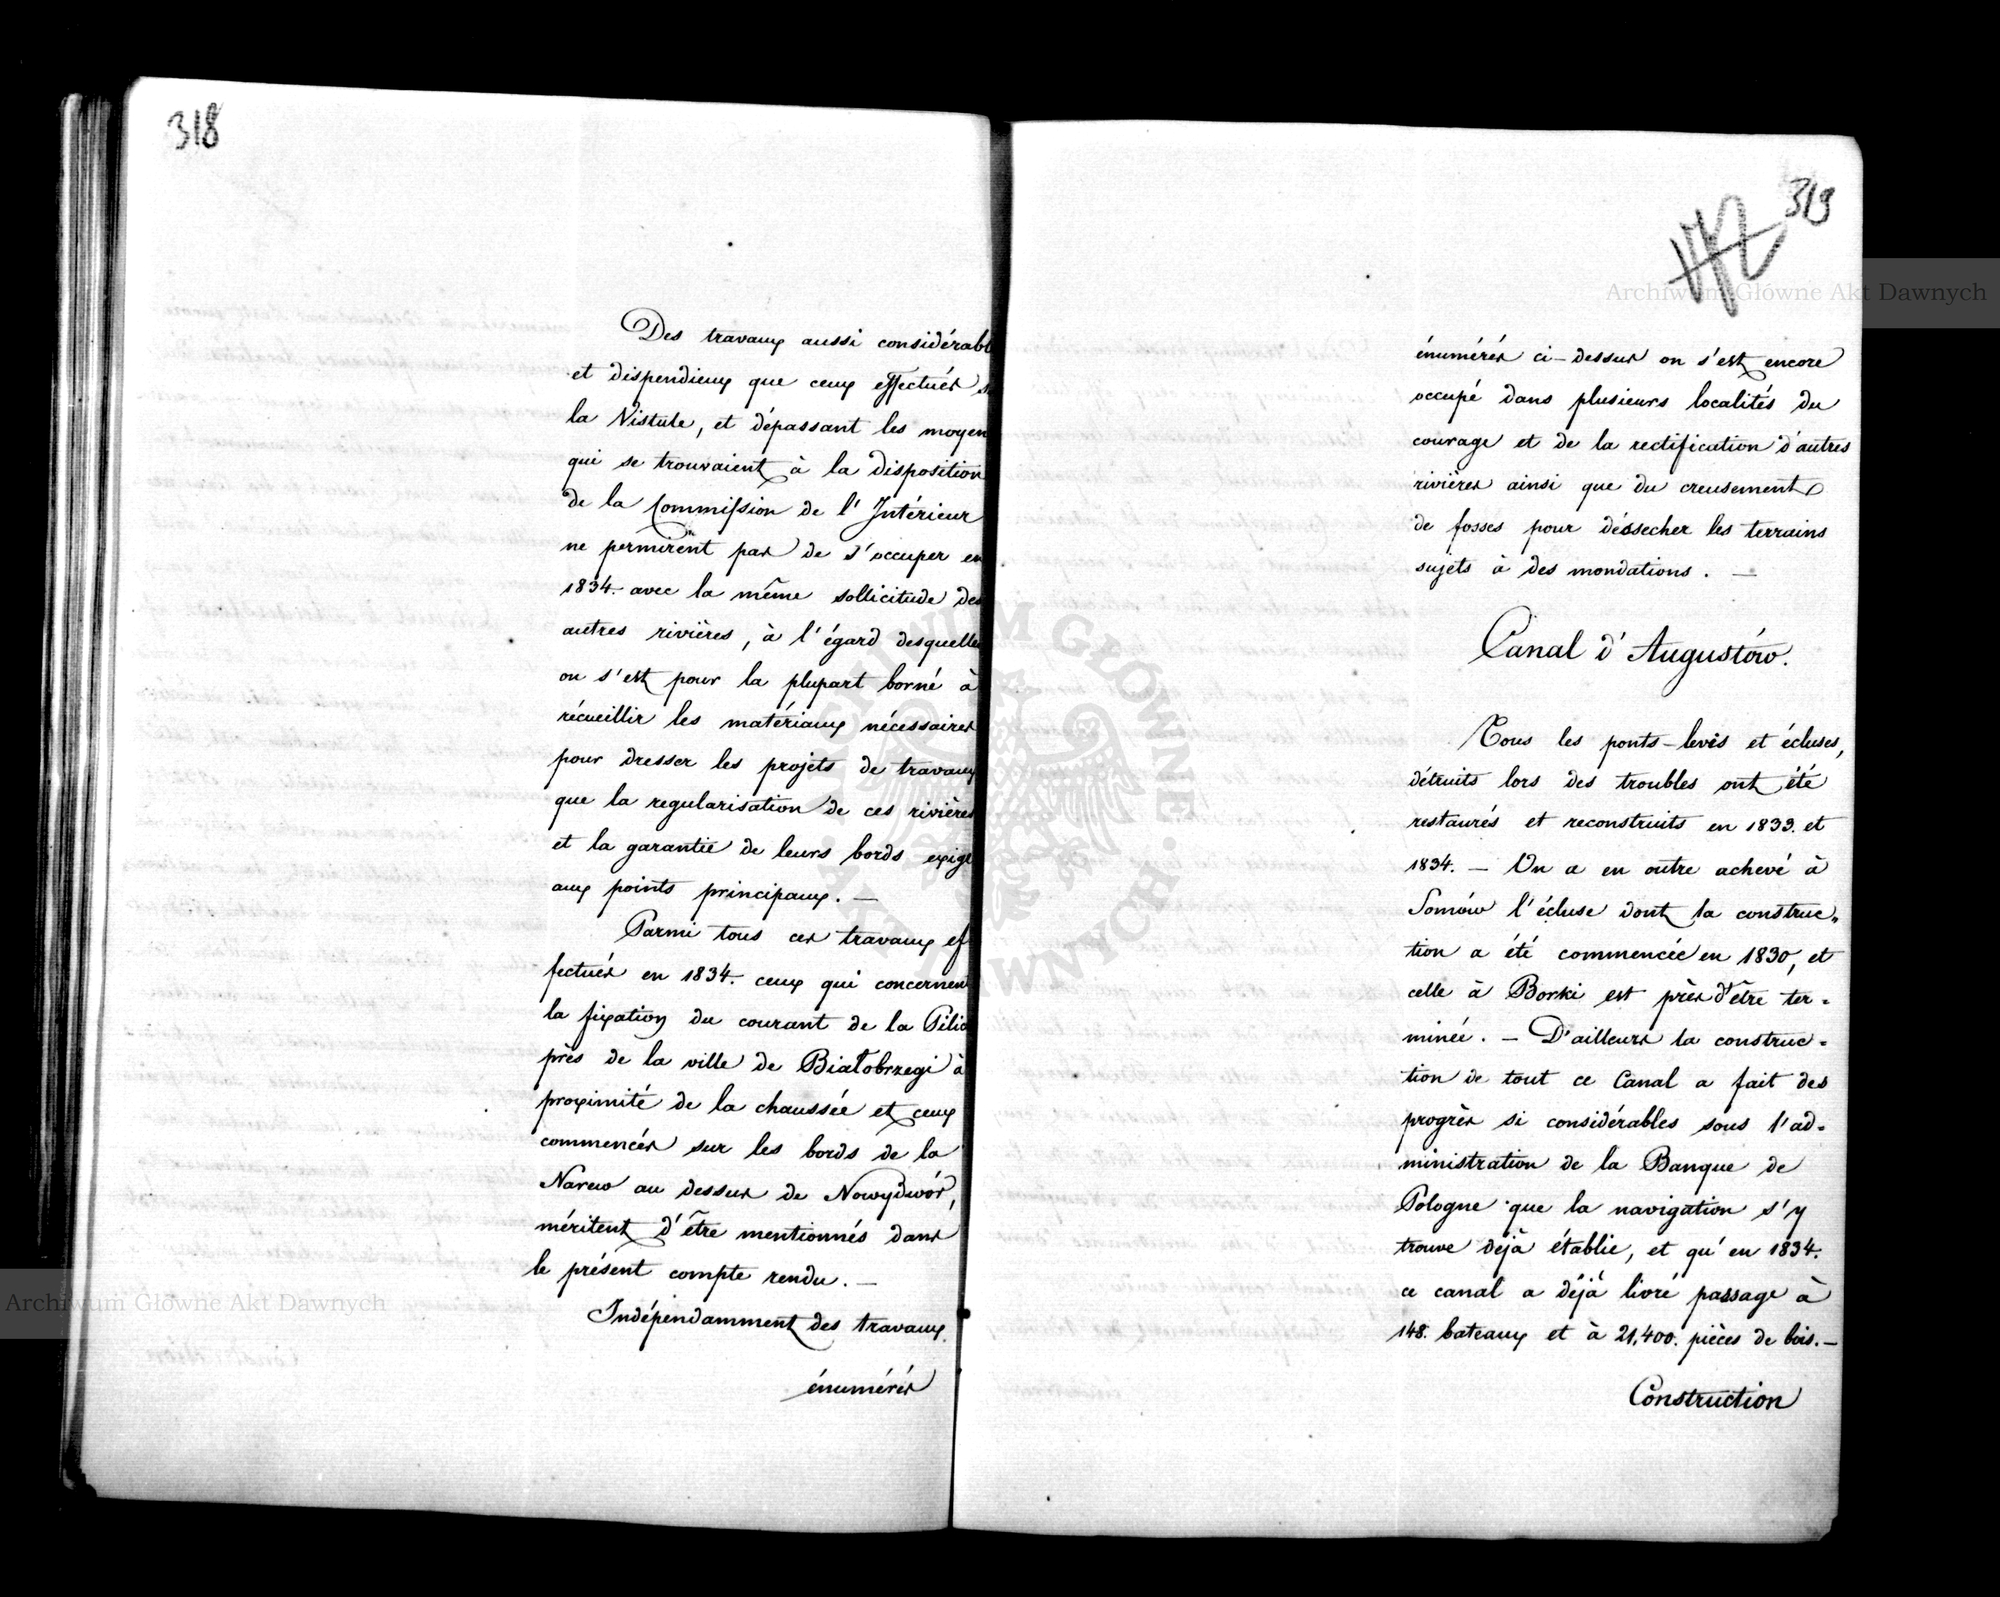 318
Des travaux aussi considérabl
et dispendieux que ceux effectués s
la Vistule, et dépassant les moyen
qui se trouvaient à la disposition
de la Commission de l'Intérieur
ne permirent pas de s'occuper en
1834. avec la même sollicitude des
autres rivières, à l'égard desquelles
on s'est pour la plupart borné à
récueillir les matériaux nécessaires
pour dresser les projets de travaux
que la regularisation de ces rivières
et la garantie de leurs bords exige
aux points principaux. —
Parmi tous ces travaux ef
fectués en 1834. ceux qui concernent
la fixation du courant de la Pilic
près de la ville de Białobrzegi à
proximité de la chaussée et ceux
commencés sur les bords de la
Narew au dessus de Nowydwór,
méritent d'être mentionnés dans
le présent compte rendu. —
Indépendamment des travaux
énumérés
319
énumérés ci-dessus on s'est encore
occupé dans plusieurs localités du
courage et de la rectification d'autres
rivières ainsi que du creusement
de fosses pour déssecher les terrains
sujets à des inondations. —
Canal d'Augustów.
Tous les ponts-levis et écluses,
détruits lors des troubles ont été
restaurés et reconstruits en 1833. et
1834. — On a en outre achevé à
Somów l'écluse dont la construc=
tion a été commencée en 1830, et
celle à Borki est près d'être ter=
minée. — D'ailleurs la construc=
tion de tout ce Canal a fait des
progrès si considérables sous l'ad=
ministration de la Banque de
Pologne que la navigation s'y
trouve déjà établie, et qu'en 1834.
ce canal a déjà livré passage à
148. bateaux et à 21,400. pièces de bois. —
Construction
Archiwum Główne Akt Dawnych
Archiwum Główne Akt Dawnych
ARCHIWUM GŁÓWNE AKT DAWNYCH